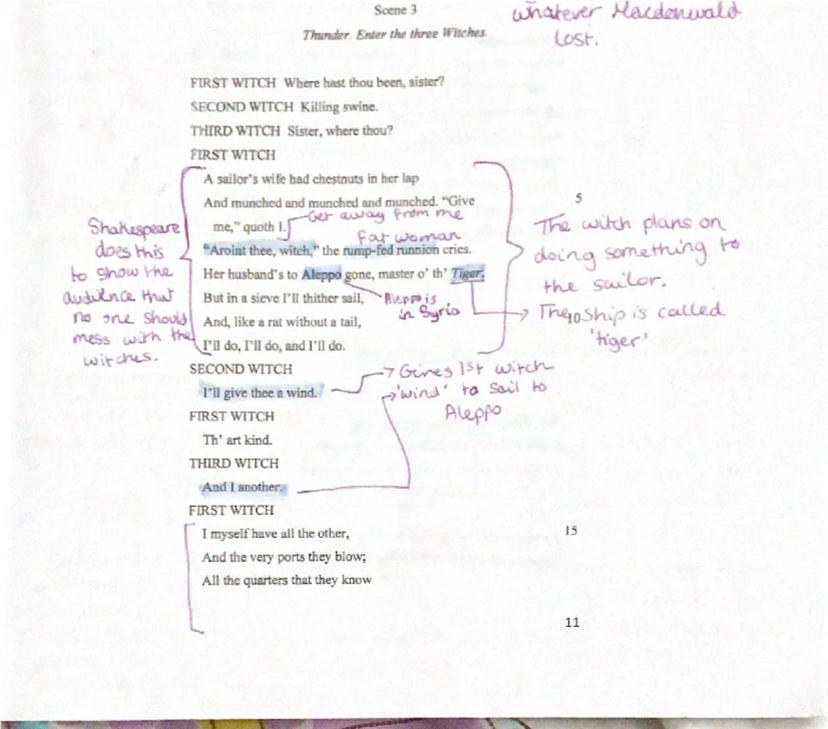 Scene 3
whatever Macdonwald
lost.
Thunder. Enter the three Witches.
FIRST WITCH Where hast thou been, sister?
SECOND WITCH Killing swine.
THIRD WITCH Sister, where thou?
FIRST WITCH
A sailor's wife had chestnuts in her lap
And munched and munched and munched. “Give
5
me,” quoth I.
Get away from me
fat woman
“Aroint thee, witch,” the rump-fed runnion cries.
Her husband's to Aleppo gone, master o' th' Tiger;
But in a sieve I'll thither sail,
Aleppo is
in Syria
And, like a rat without a tail,
10
I'll do, I'll do, and I'll do.
Shakespeare
does this
to show the
audience that
no one should
mess with the
witches.
The witch plans on
doing something to
the sailor.
The ship is called
'tiger'
SECOND WITCH
I'll give thee a wind.
Gives 1st witch
'wind' to sail to
Aleppo
FIRST WITCH
Th' art kind.
THIRD WITCH
And I another.
FIRST WITCH
I myself have all the other,
15
And the very ports they blow;
All the quarters that they know
11